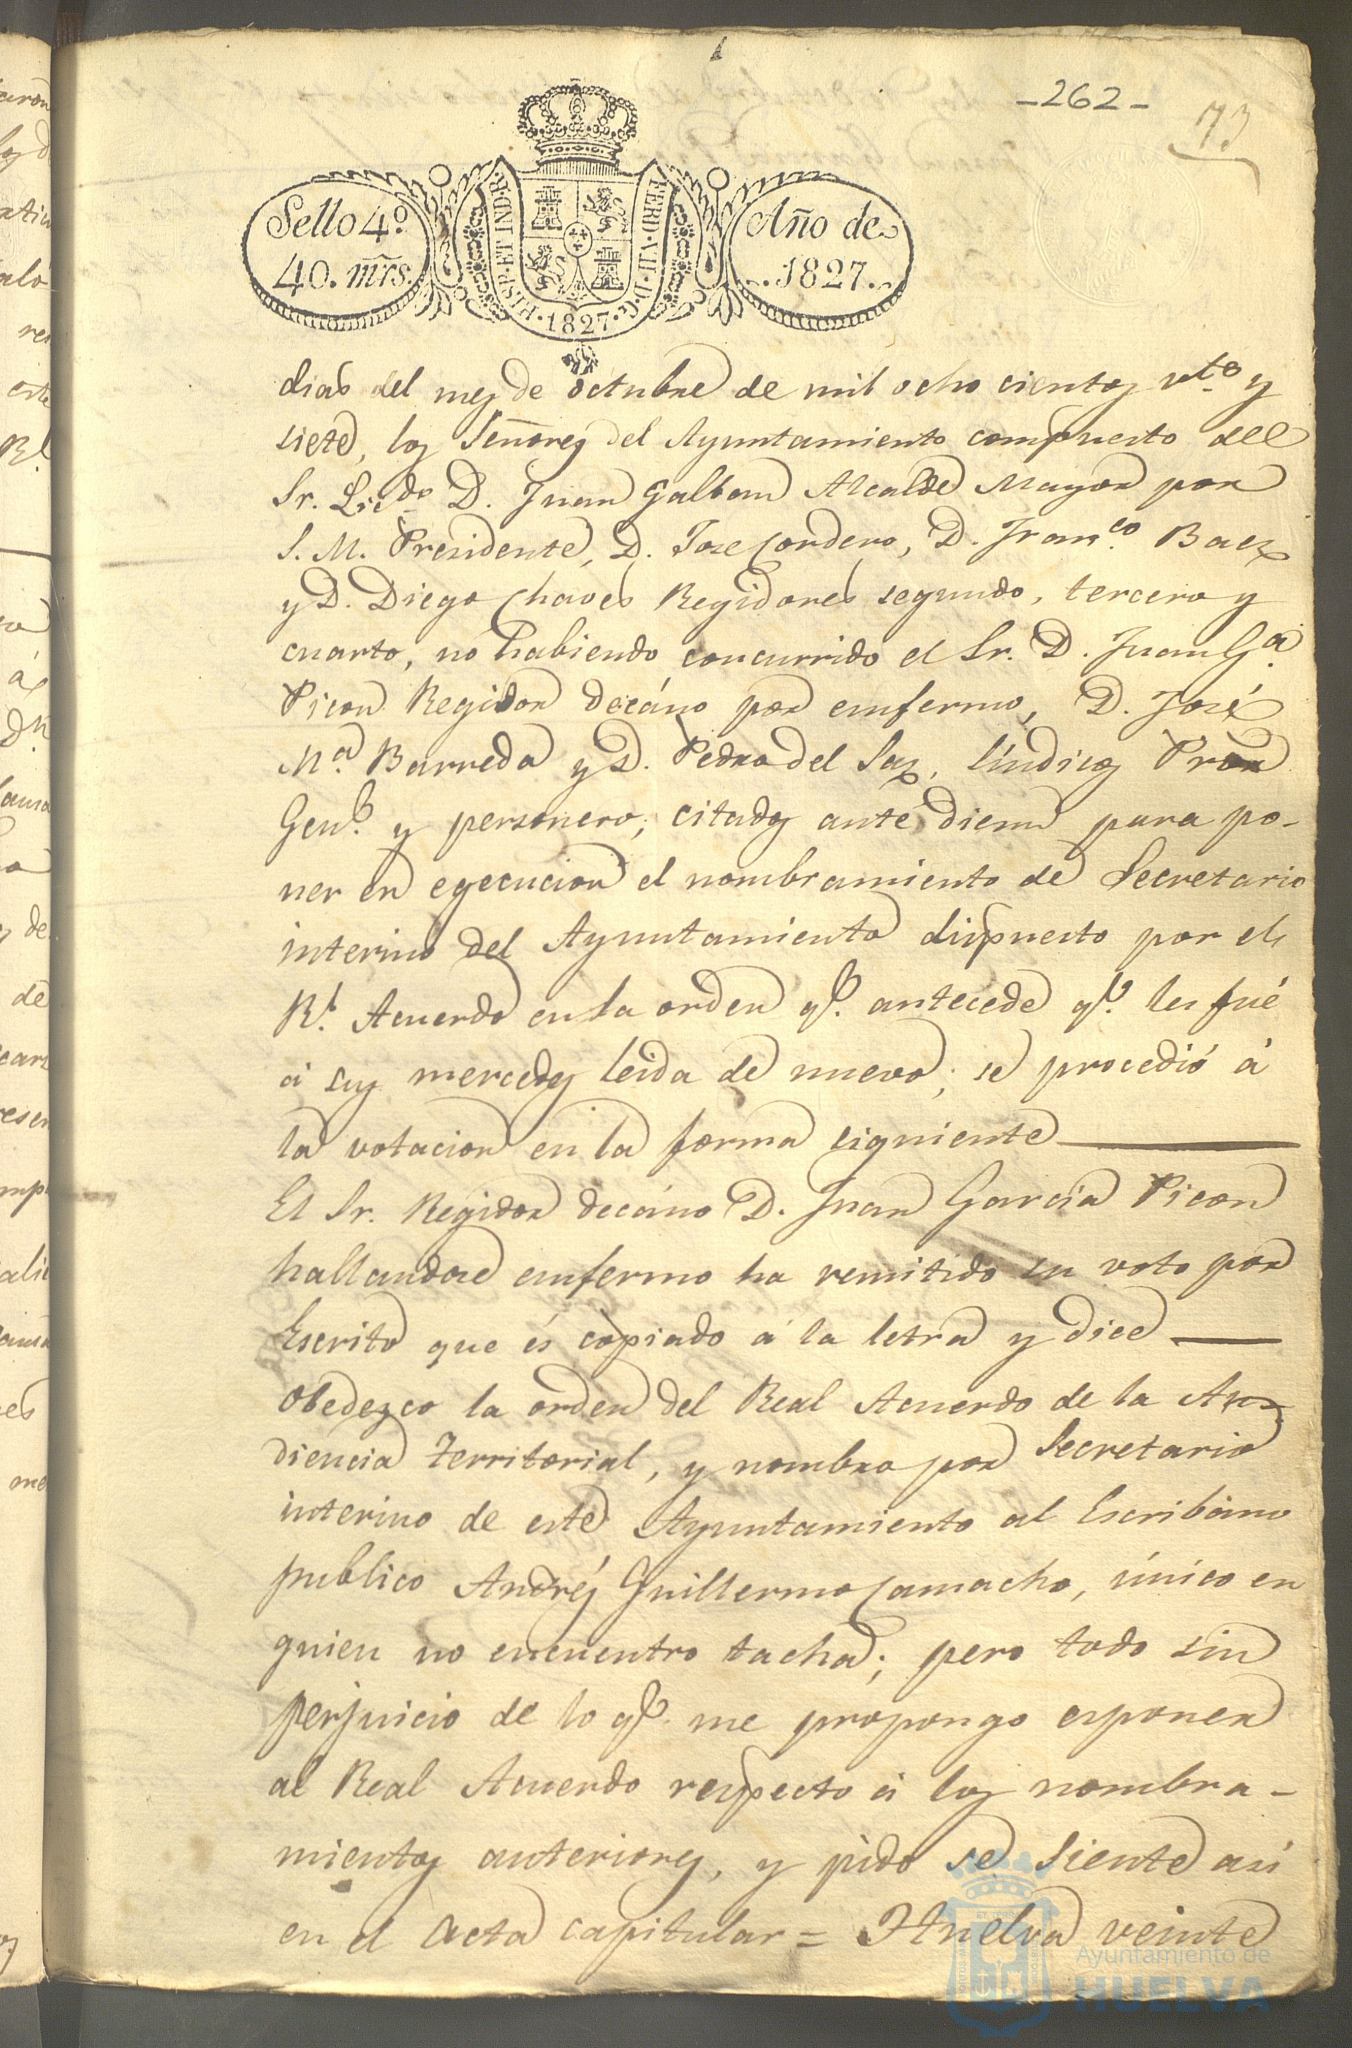 -262-
73
Sello 4.º
40. mrs.
HISP. ET IND. R.
FERD. VII. D. G.
1827
Año de
1827.
dias del mes de octubre de mil ocho cientos vte. y
siete, los Señores del Ayuntamiento compuesto del
Sr. Licdo. D. Juan Galban Alcalde Mayor por
S. M. Presidente, D. Jose Cordero, D. Franco. Baez
y D. Diego Chaves Regidores segundo, tercero y
cuarto, no habiendo concurrido el Sr. D. Juan Ga.
Picon Regidor decáno por emfermo, D. José
Ma. Barreda y D. Pedro del Saz, Síndicos Pror.
Genl. y personero; citados ante diem para po-
ner en egecucion el nombramiento de Secretario
interino del Ayuntamiento dispuesto por el
Rl. Acuerdo en la orden qe. antecede qe. les fué
á sus mercedes leida de nuevo; se procedió á
la votacion en la forma siguiente
El Sr. Regidor decáno D. Juan Garcia Picon
hallandose emfermo ha remitido su voto por
Escrito que és copiado á la letra y dice
Obedezco la orden del Real Acuerdo de la Au-
diencia Territorial, y nombro por Secretario
interino de este Ayuntamiento al Escribano
publico Andrés Guillermo Camacho, único en
quien no encuentro tacha; pero todo sin
perjuicio de lo qe. me propongo esponer
al Real Acuerdo respecto á los nombra-
mientos anteriores, y pido se siente asi
en el Acta capitular = Huelva veinte
Ayuntamiento de
HUELVA